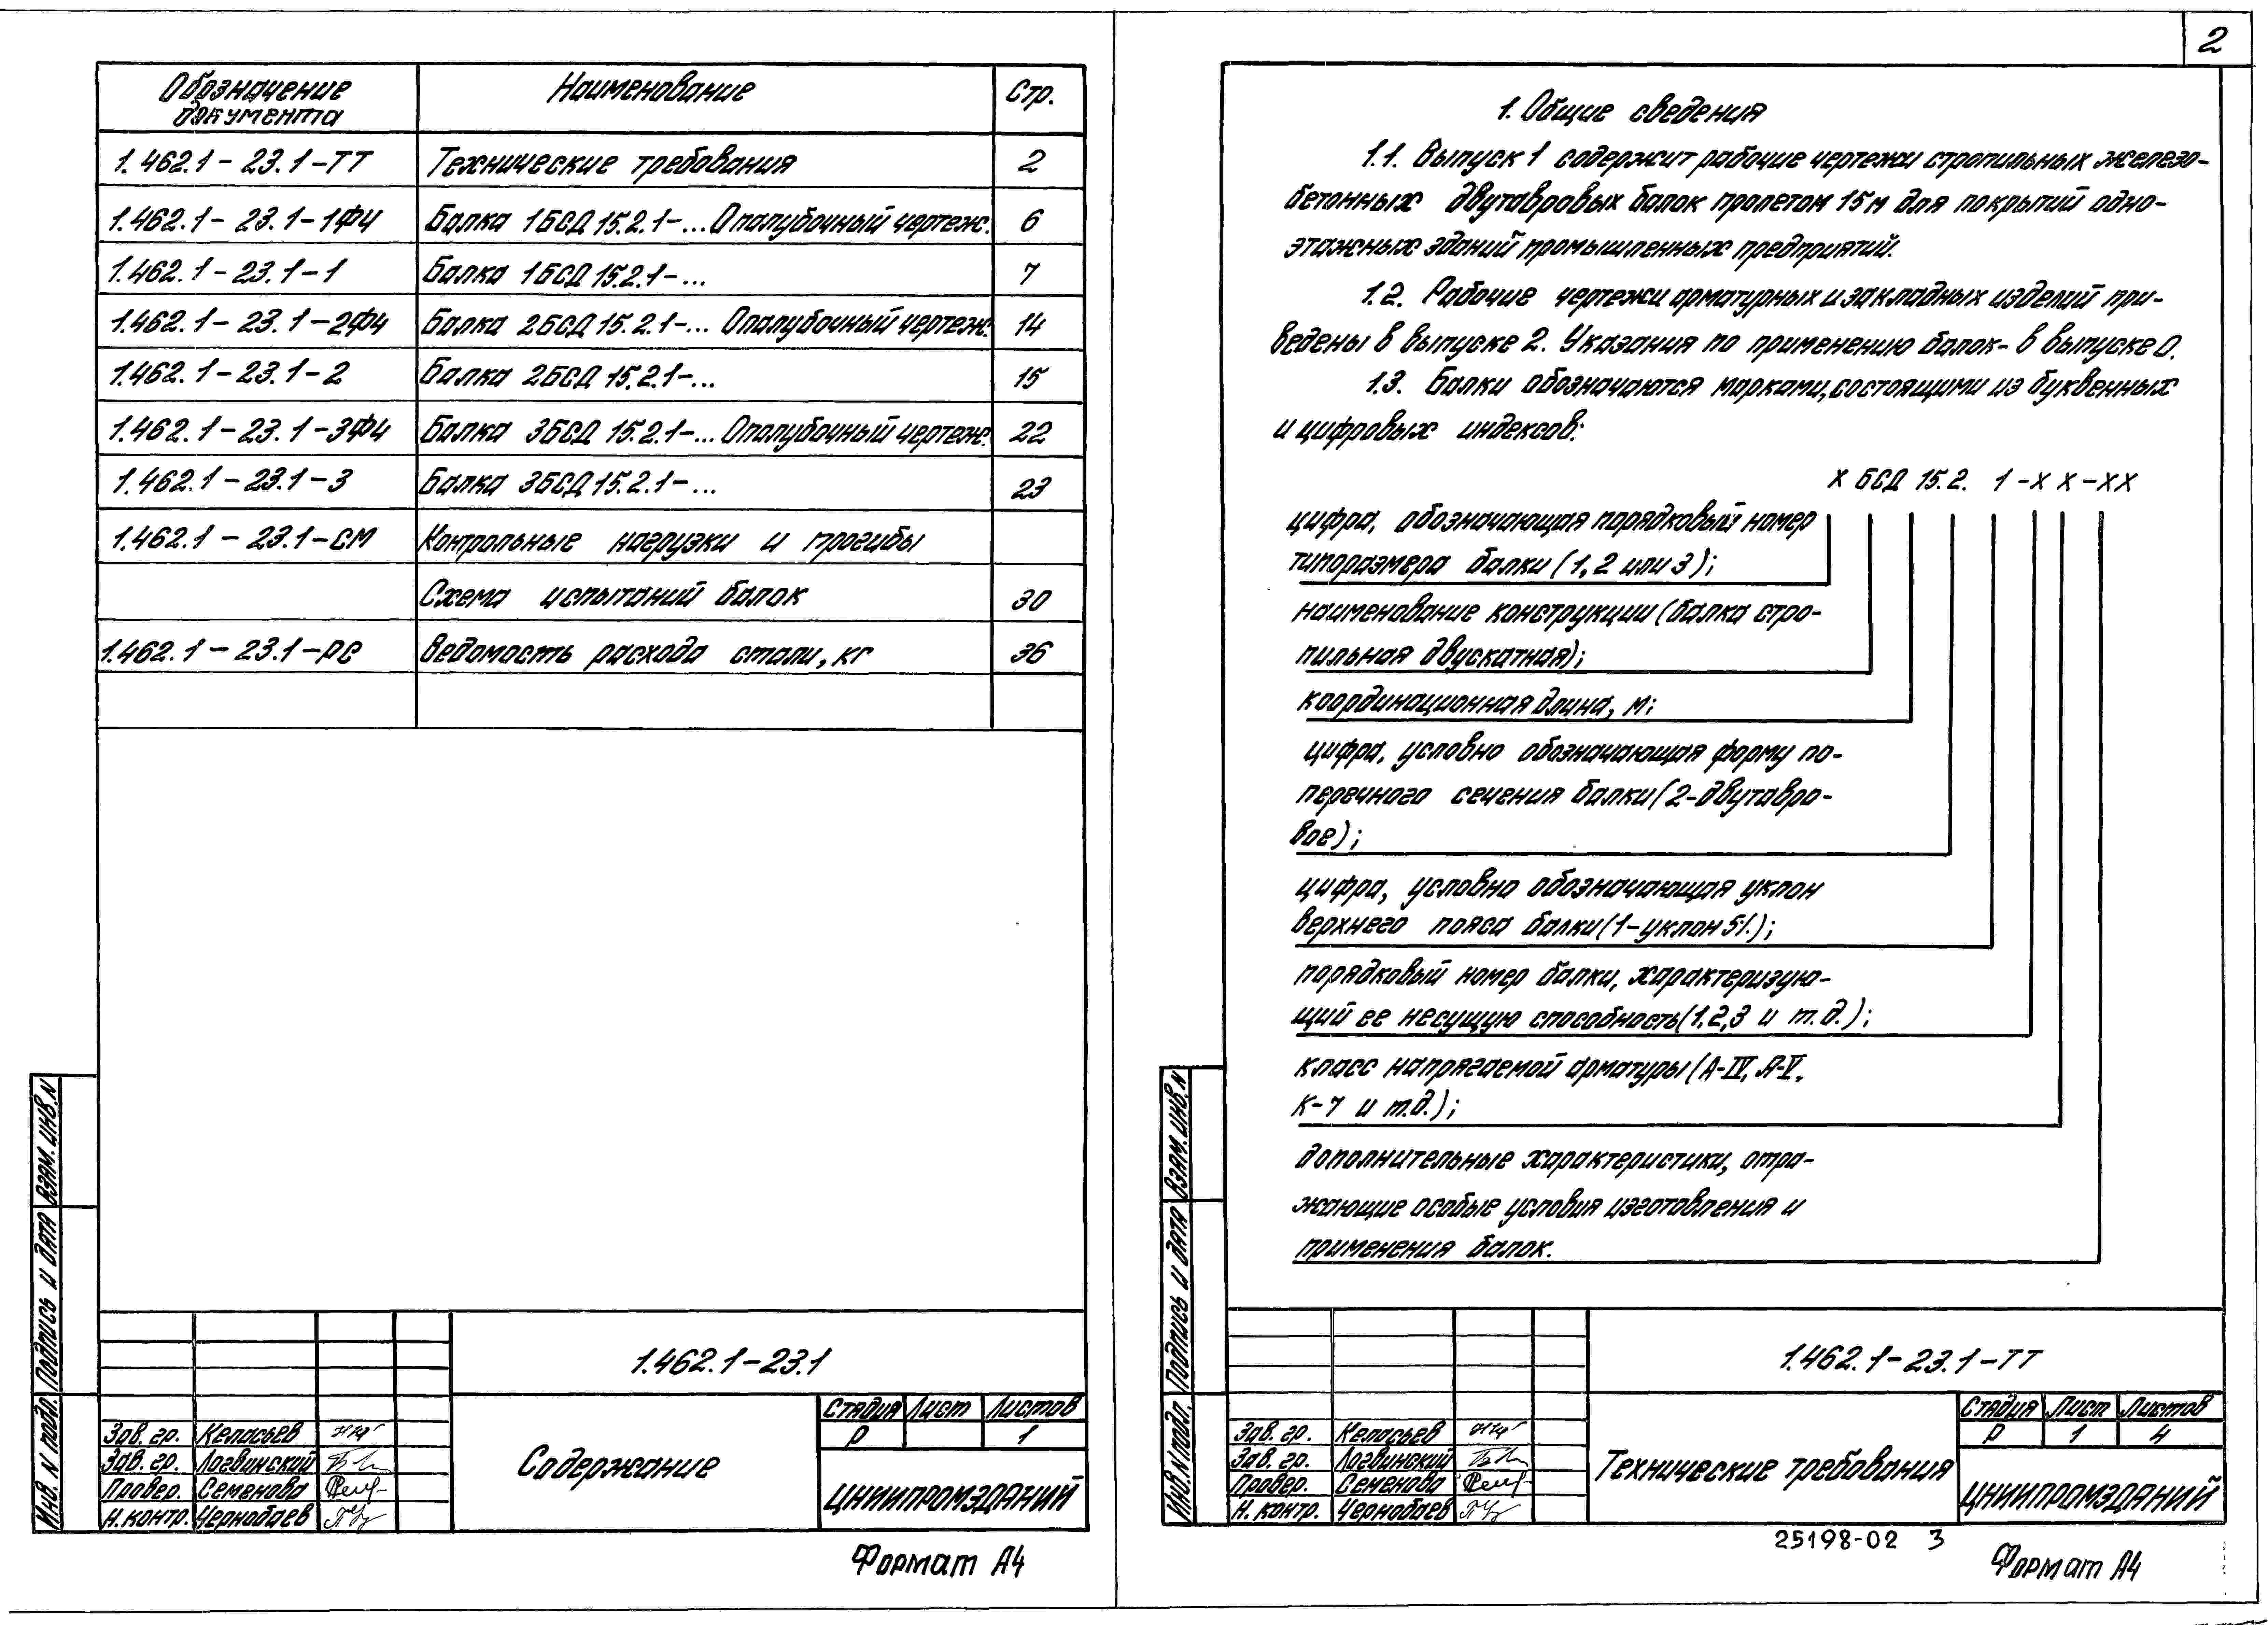 Обозначение документа | Наименование | Стр.
1.462.1-23.1-ТТ | Технические требования | 2
1.462.1-23.1-1ФЧ | Балка 1БСД 15.2.1-... Опалубочный чертеж. | 6
1.462.1-23.1-1 | Балка 1БСД 15.2.1-... | 7
1.462.1-23.1-2ФЧ | Балка 2БСД 15.2.1-... Опалубочный чертеж. | 14
1.462.1-23.1-2 | Балка 2БСД 15.2.1-... | 15
1.462.1-23.1-3ФЧ | Балка 3БСД 15.2.1-... Опалубочный чертеж. | 22
1.462.1-23.1-3 | Балка 3БСД 15.2.1-... | 23
1.462.1-23.1-СМ | Контрольные нагрузки и прогибы
Схема испытаний балок | 30
1.462.1-23.1-РС | Ведомость расхода стали, кг | 36
Взам. инв. N
Подпись и дата
Инв. N подл.
1.462.1-23.1
Стадия Лист Листов
Р 1
Зав. гр. Келасьев
Зав. гр. Логвинский
Провер. Семенова
Н. контр. Чернобаев
Содержание
ЦНИИПРОМЗДАНИЙ
Формат А4
2
1. Общие сведения
1.1. Выпуск 1 содержит рабочие чертежи стропильных железо-
бетонных двутавровых балок пролетом 15м для покрытий одно-
этажных зданий промышленных предприятий.
1.2. Рабочие чертежи арматурных и закладных изделий при-
ведены в выпуске 2. Указания по применению балок - в выпуске 0.
1.3. Балки обозначаются марками, состоящими из буквенных
и цифровых индексов:
Х БСД 15.2. 1 -Х Х -ХХ
цифра, обозначающая порядковый номер
типоразмера балки (1, 2 или 3);
наименование конструкции (балка стро-
пильная двускатная);
координационная длина, м;
цифра, условно обозначающая форму по-
перечного сечения балки (2-двутавро-
вое);
цифра, условно обозначающая уклон
верхнего пояса балки (1-уклон 5%);
порядковый номер балки, характеризую-
щий ее несущую способность (1,2,3 и т.д.);
класс напрягаемой арматуры (А-IV, А-V,
К-7 и т.д.);
дополнительные характеристики, отра-
жающие особые условия изготовления и
применения балок.
Взам. инв. N
Подпись и дата
Инв. N подл.
1.462.1-23.1-ТТ
Стадия Лист Листов
Р 1 4
Зав. гр. Келасьев
Зав. гр. Логвинский
Провер. Семенова
Н. контр. Чернобаев
Технические требования
ЦНИИПРОМЗДАНИЙ
25198-02 3
Формат А4